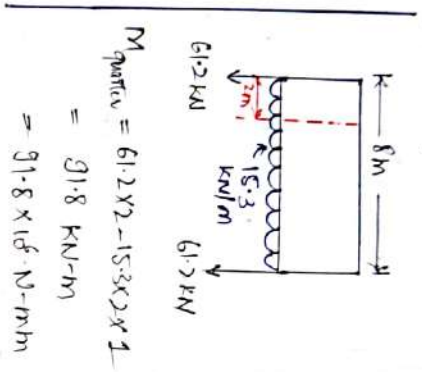 8m
2m
15.3
KN/m
61.2 KN
61.2 KN
M quarter = 61.2x2-15.3x2x1
= 91.8 KN-m
= 91.8 x 10⁶ N-mm